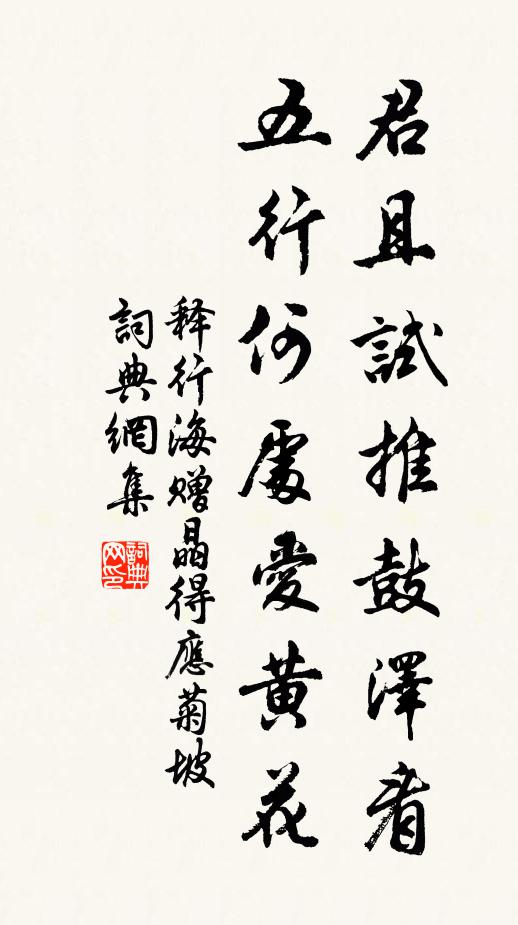 君且試推鼓澤看
五行何處愛黃花
释行海赠晶得應菊坡
詞典網集
詞典网印